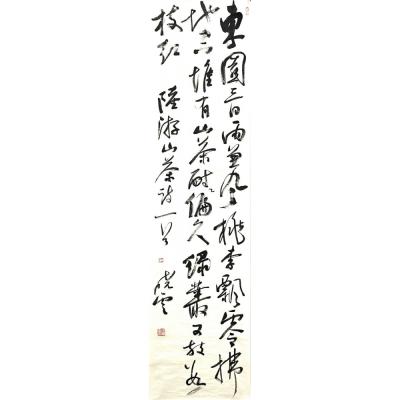 東園三日雨兼風桃李飄零掃
地空惟有山茶耐偏久綠叢又放數
枝紅 陸游山茶詩一首 曉雲